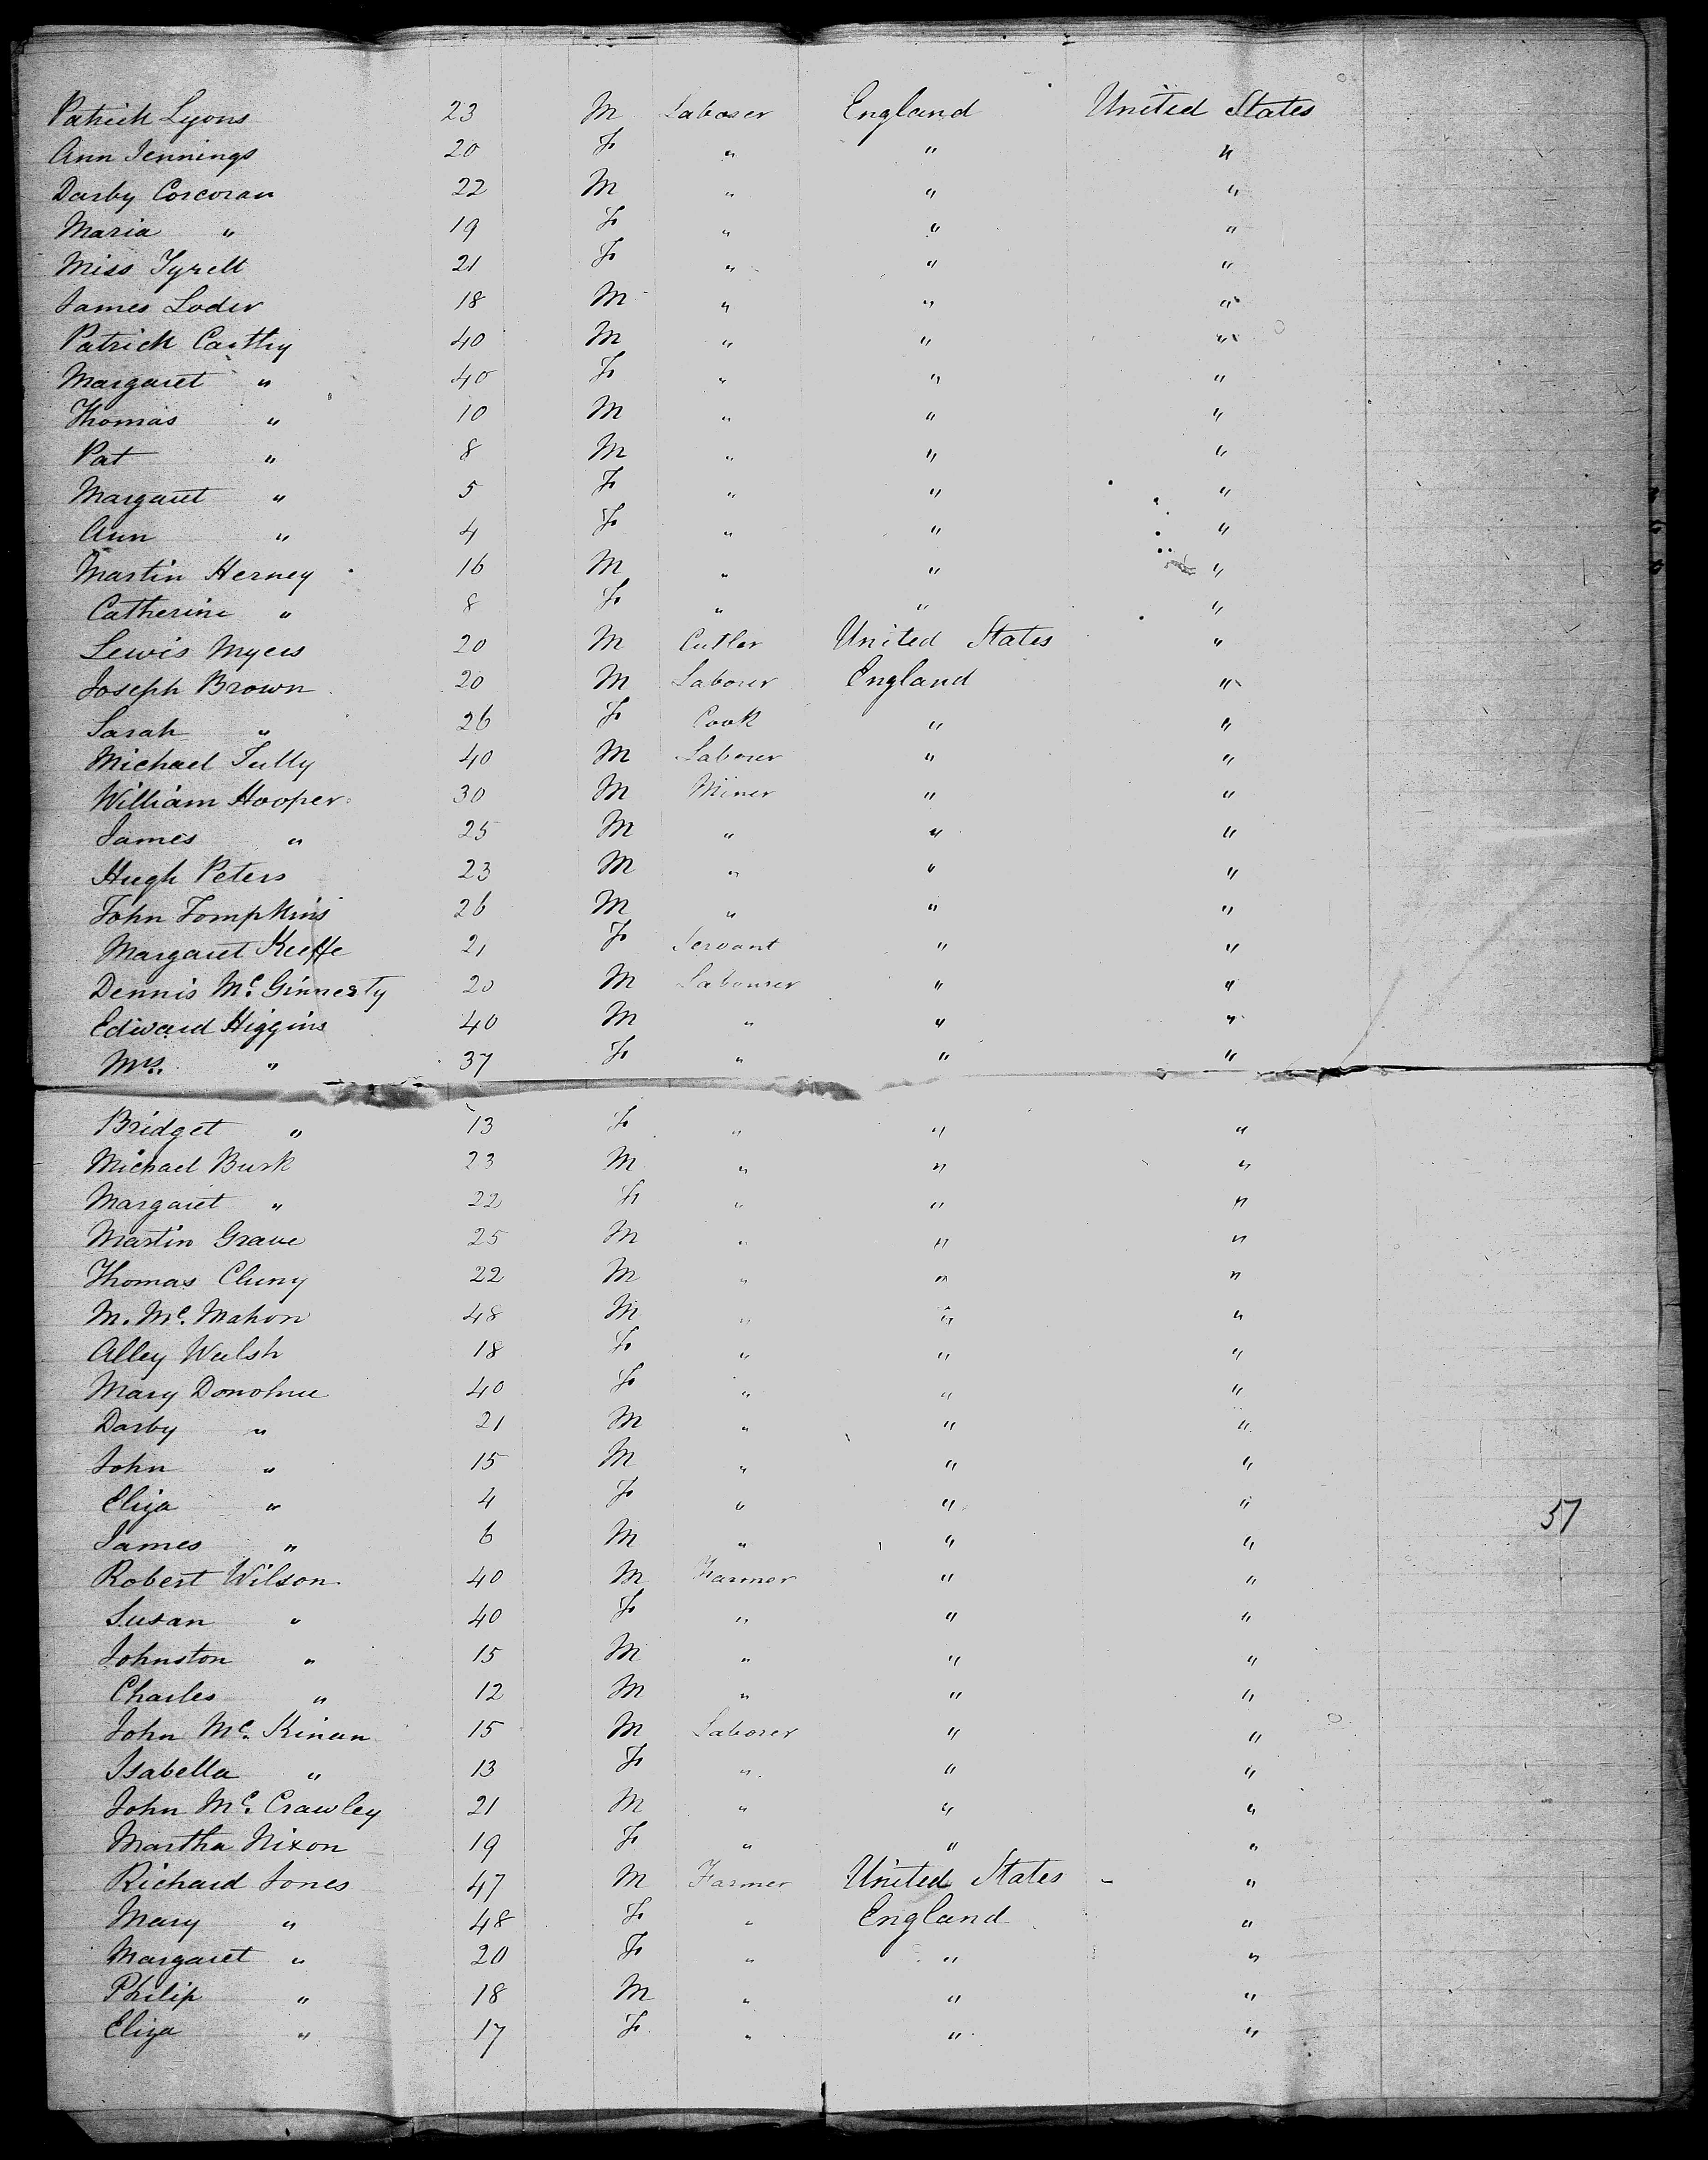 Patrick Lyons 23 M Laborer England United States
Ann Jennings 20 F " " "
Darby Corcoran 22 M " " "
Maria " 19 F " " "
Miss Tyrell 21 F " " "
James Loder 18 M " " "
Patrick Carthy 40 M " " "
Margaret " 40 F " " "
Thomas " 10 M " " "
Pat " 8 M " " "
Margaret " 5 F " " "
Ann " 4 F " " "
Martin Herney 16 M " " "
Catherine " 8 F " " "
Lewis Myers 20 M Cutler United States "
Joseph Brown 20 M Laborer England "
Sarah " 26 F Cook " "
Michael Tully 40 M Laborer " "
William Hooper 30 M Miner " "
James " 25 M " " "
Hugh Peters 23 M " " "
John Tompkins 26 M " " "
Margaret Keeffe 21 F Servant " "
Dennis Mc. Ginnesty 20 M Labourer " "
Edward Higgins 40 M " " "
Mrs. " 37 F " " "
Bridget " 13 F " " "
Michael Burk 23 M " " "
Margaret " 22 F " " "
Martin Grave 25 M " " "
Thomas Cluny 22 M " " "
M. Mc. Mahon 48 M " " "
Alley Walsh 18 F " " "
Mary Donohue 40 F " " "
Darby " 21 M " " "
John " 15 M " " "
Eliza " 4 F " " "
57
James " 6 M " " "
Robert Wilson 40 M Farmer " "
Susan " 40 F " " "
Johnston " 15 M " " "
Charles " 12 M " " "
John Mc. Kinan 15 M Laborer " "
Isabella " 13 F " " "
John Mc. Crawley 21 M " " "
Martha Nixon 19 F " " "
Richard Jones 47 M Farmer United States "
Mary " 48 F " England "
Margaret " 20 F " " "
Philip " 18 M " " "
Eliza " 17 F " " "